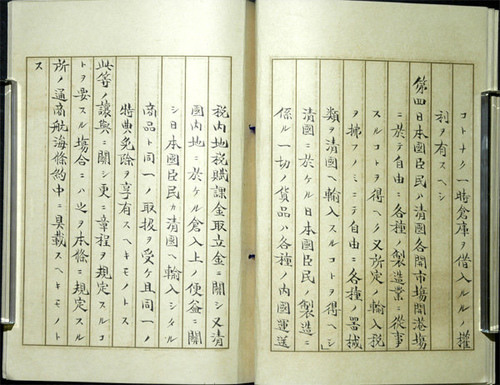 コトナク一時倉庫ヲ借入ルヽノ權
利ヲ有スヘシ
第四日本國臣民ハ清國各開市場開港場
ニ於テ自由ニ各種ノ製造業ニ從事
スルコトヲ得ヘク又所定ノ輸入税
ヲ拂フノミニテ自由ニ各種ノ器械
類ヲ清國ヘ輸入スルコトヲ得ヘシ
清國ニ於ケル日本國臣民ノ製造ニ
係ル一切ノ貨品ハ各種ノ內國運送
税內地税賦課金取立金ニ關シ又清
國內地ニ於ケル倉入上ノ便益ニ關
シ日本國臣民カ清國ヘ輸入シタル
商品ト同一ノ取扱ヲ受ケ且同一ノ
特典免除ヲ享有スヘキモノトス
此等ノ讓與ニ關シ更ニ章程ヲ規定スルコ
トヲ要スル塲合ニハ之ヲ本條ニ規定スル
所ノ通商航海條約中ニ具載スヘキモノト
ス